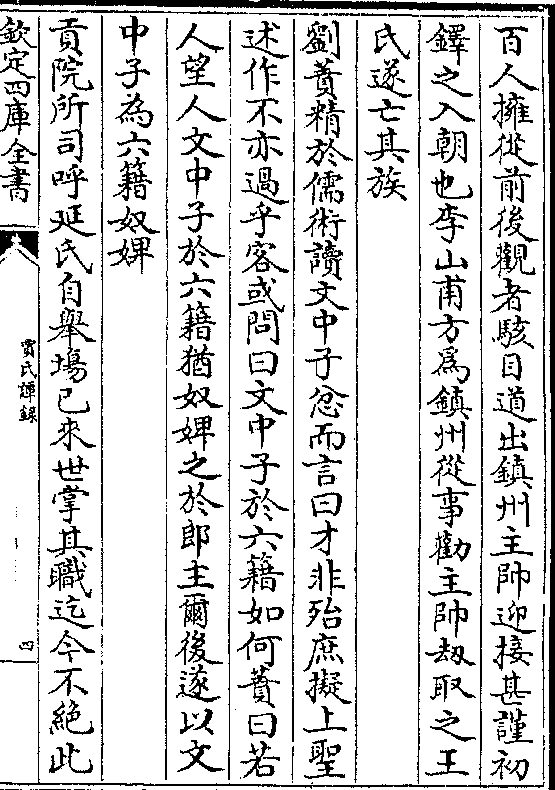 百人擁從前後觀者駭目道出鎮州主帥迎接甚謹初
鐸之入朝也李山甫方為鎮州從事勸主帥刼取之王
氏遂亡其族
劉蕡精於儒術讀文中子忿而言曰才非殆庶擬上聖
述作不亦過乎客或問曰文中子於六籍如何蕡曰若
人望人文中子於六籍猶奴婢之於郎主爾後遂以文
中子為六籍奴婢
貢院所司呼延氏自舉塲已來世掌其職迄今不絕此
欽定四庫全書
賈氏譚錄
四